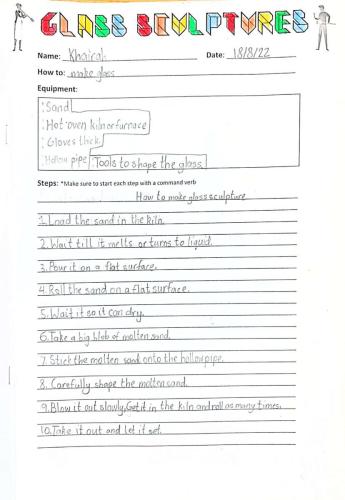 GLASS SCULPTURES
Name: Khairah Date: 18/8/22
How to: make glass
Equipment:
:Sand
:Hot oven kiln or furnace
:Gloves thick
:Hollow pipe :Tools to shape the glass
Steps: *Make sure to start each step with a command verb
How to make glass sculpture
1. Load the sand in the kiln.
2. Wait till it melts or turns to liquid.
3. Pour it on a flat surface.
4. Roll the sand on a flat surface.
5. Wait it so it can dry.
6. Take a big blob of molten sand.
7. Stick the molten sand onto the hollow pipe.
8. Carefully shape the molten sand.
9. Blow it out slowly, Get it in the kiln and roll as many times.
10. Take it out and let it set.